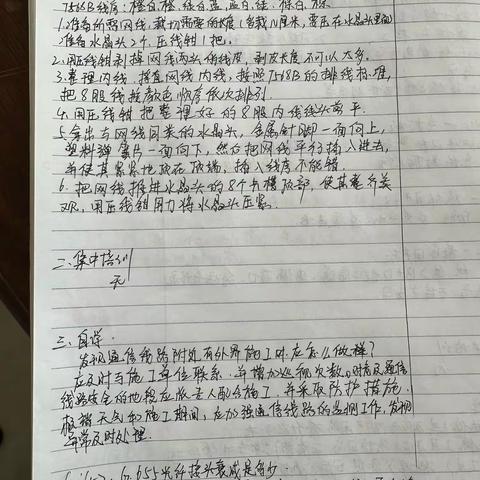 T568B线序：橙白、橙、绿白、蓝、蓝白、绿、棕白、棕。
1.准备所需网线，裁切需要的长度
准备水晶头2个，压线钳1把。
2.用压线钳剥掉网线两头的线皮，剥皮长度不可以太多。
3.整理内线，捋直网线内线，按照T568B的排线标准，
把8股线按颜色顺序依次排列。
4.用压线钳把整理好的8股内线线头剪平。
5.拿出与网线同类的水晶头，金属针脚一面向上，
塑料弹簧片一面向下，然后把网线平行插入进去，
并使其紧紧地顶在顶端，插入线序不能错
6.把网线推进水晶头的8个卡槽顶部，使其整齐美
观，用压线钳用力将水晶头压紧。
二、集中培训
无
三、自学：
发现通信线路附近有外界施工时应怎么做？
应及时与施工单位联系，并增加巡视次数。对危及通信
线路安全的地段应派专人配合施工，并采取防护措施。
天气和施工期间，应加强通信线路的监测工作，发现
异常及时处理。
G.655光纤接头衰减是多少.